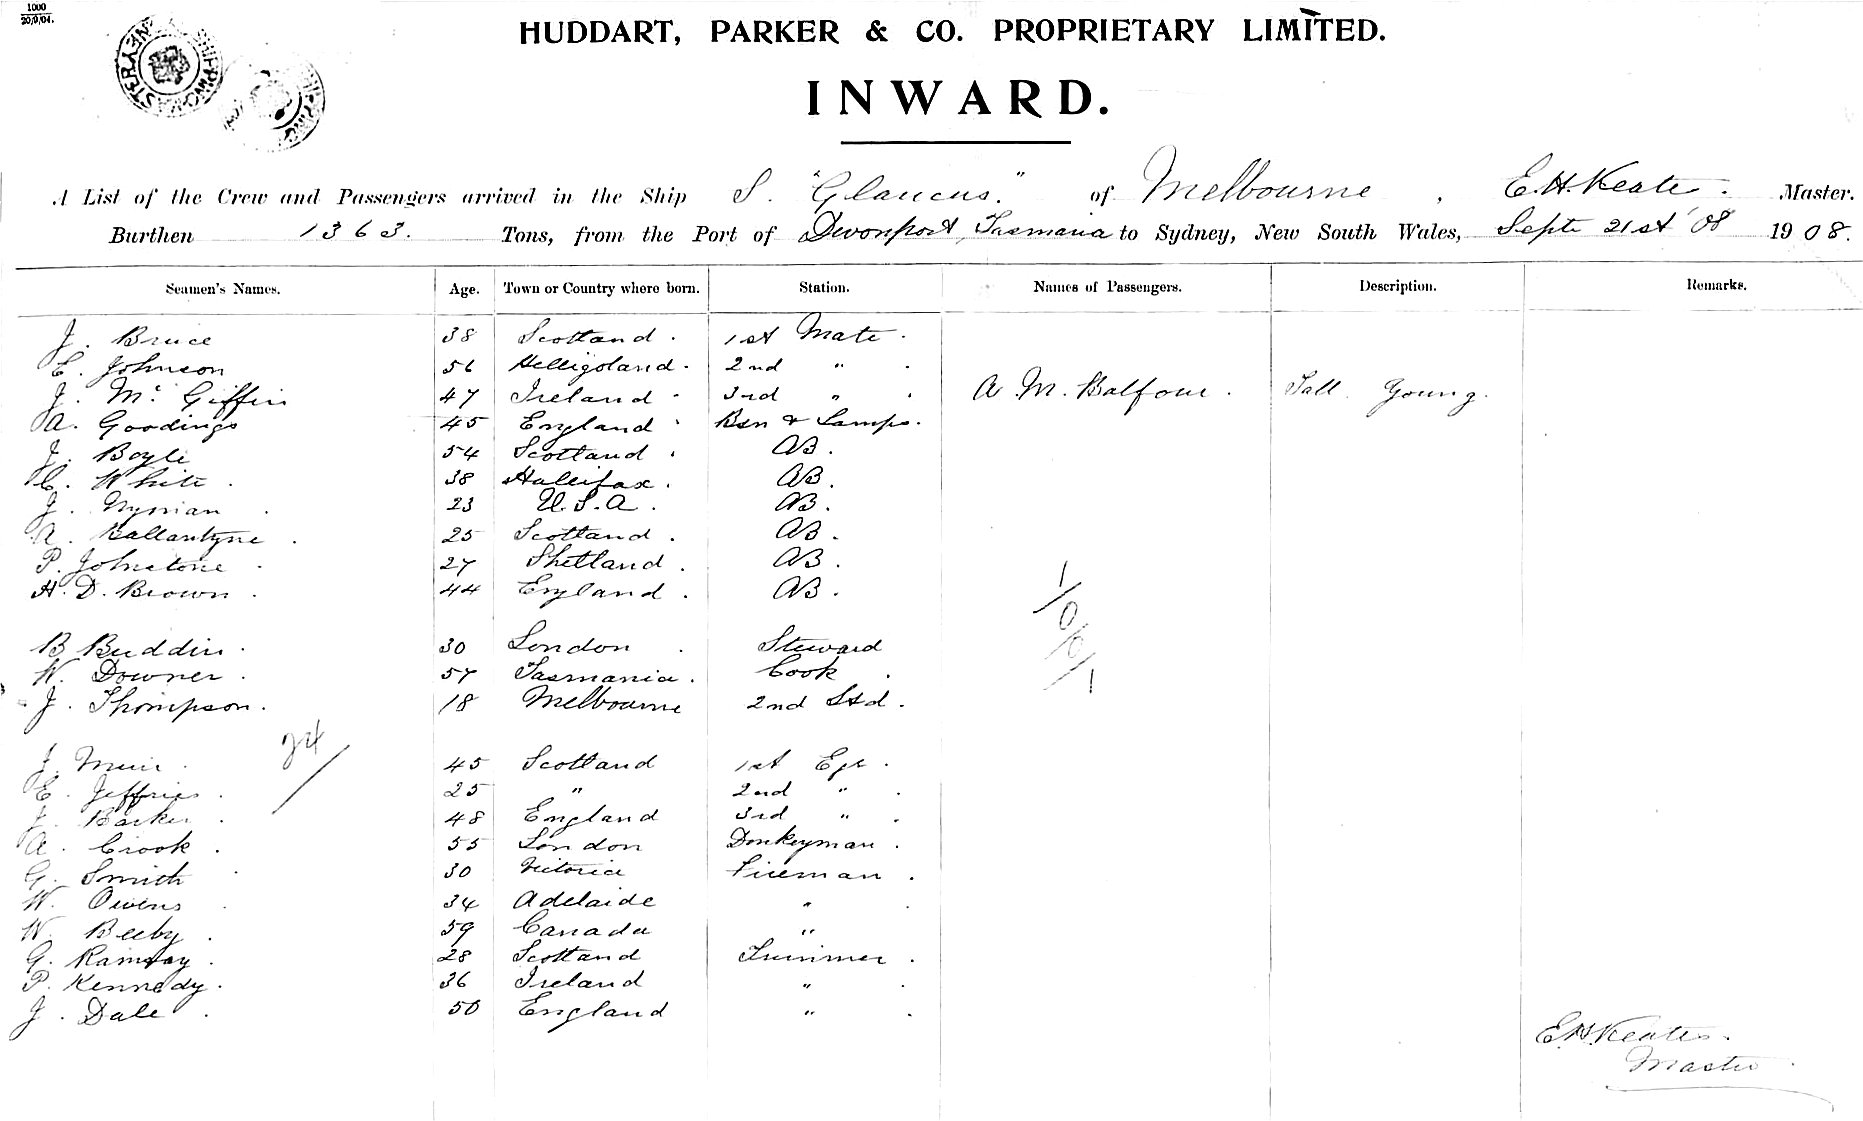 1000
20/9/04.
HUDDART, PARKER & CO. PROPRIETARY LIMITED.
INWARD.
A List of the Crew and Passengers arrived in the Ship S. "Glaucus." of Melbourne, E.H. Keates. Master.
Burthen 1363. Tons, from the Port of Devonport, Tasmania to Sydney, New South Wales, Septr 21st '08 1908.
Seamen's Names. Age. Town or Country where born. Station. Names of Passengers. Description. Remarks.
J. Bruce 38 Scotland. 1st Mate.
E. Johnson 56 Helligoland. 2nd "
J. Mc Giffin 47 Ireland. 3rd " A. M. Balfour. Tall. Young.
A. Goodings 45 England. Bsn & Lamps.
J. Boyle 54 Scotland. AB.
C. White. 38 Hallifax. AB.
J. Nyman. 23 U.S.A. AB.
A. Ballantyne. 25 Scotland. AB.
P. Johnstone. 27 Shetland. AB.
H. D. Brown. 44 England. AB.
1/0/0/1
B Buddin. 30 London. Steward
W. Downer. 57 Tasmania. Cook.
J. Thompson. 18 Melbourne 2nd Std.
24/
J. Muir. 45 Scotland 1st Egr.
E. Jeffries. 25 " 2nd "
J. Barker. 48 England 3rd "
A. Crook. 55 London Donkeyman.
G. Smith. 30 Victoria Fireman.
W. Owens. 34 Adelaide "
W. Beeby. 59 Canada "
G. Ramsay. 28 Scotland Trimmer.
P. Kennedy. 36 Ireland "
J. Dale. 50 England "
E.H. Keates.
Master